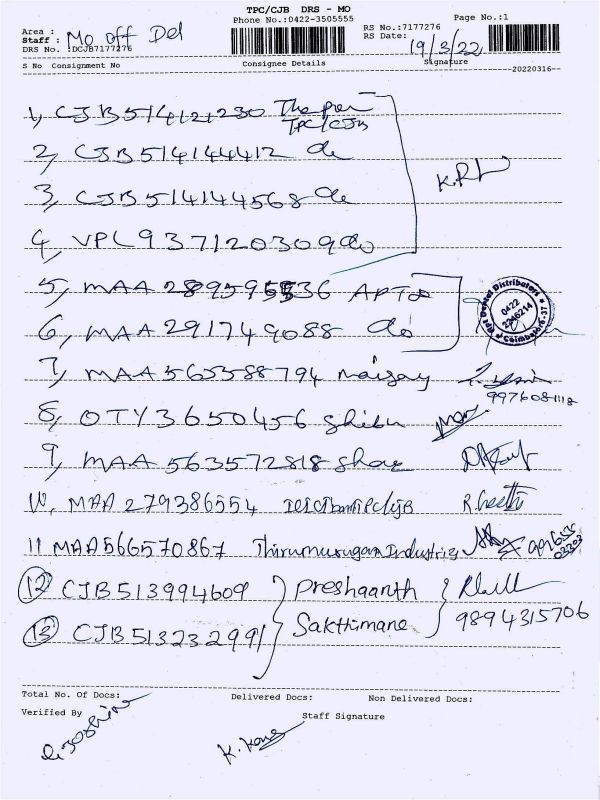 TPC/CJB DRS - MO
Phone No.:0422-3505555
Page No.:1
Area :
Staff : Mo off Del
DRS No. :DCJB7177276
RS No.:7177276
RS Date: 19/3/22
S No Consignment No Consignee Details Signature
20220316
1, CJB514121230 The
TPC/CJB
2, CJB514144412 do
3, CJB514144568 do
4, VPL937120309 do
5, MAA 36
6, MAA 291749088 do
7, MAA 565588794
9976081118
8, OTY3650456 Shibu
9, MAA 563572818
10, MAA 279386554
11 MAA566570867 Thirumurugan Industries
12 CJB513994609 Preshaanth
13 CJB513232991 Sakthimane
9894315706
Dental Distributors
0422
2346214
Coimbatore-37
Total No. Of Docs: Delivered Docs: Non Delivered Docs:
Verified By
Staff Signature